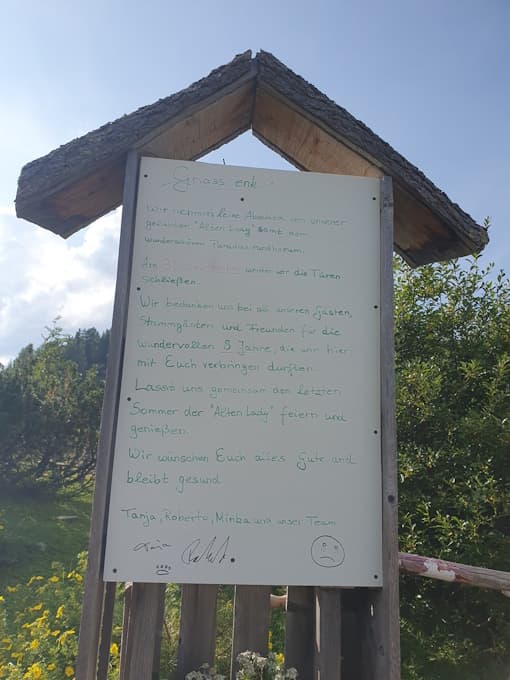 "Griass enk"
Wir nehmen leine Abschied von unserer
geliebten "Alten Lady" samt dem
wunderschönen Paradies rundherum.
Am werden wir die Türen
schließen.
Wir bedanken uns bei all unseren Gästen,
Stammgästen und Freunden für die
wundervollen 8 Jahre, die wir hier
mit Euch verbringen durften.
Lasst uns gemeinsam den letzten
Sommer der "Alten Lady" feiern und
genießen.
Wir wünschen Euch alles Gute und
bleibt gesund
Tanja, Roberto, Minka und unser Team
Tanja